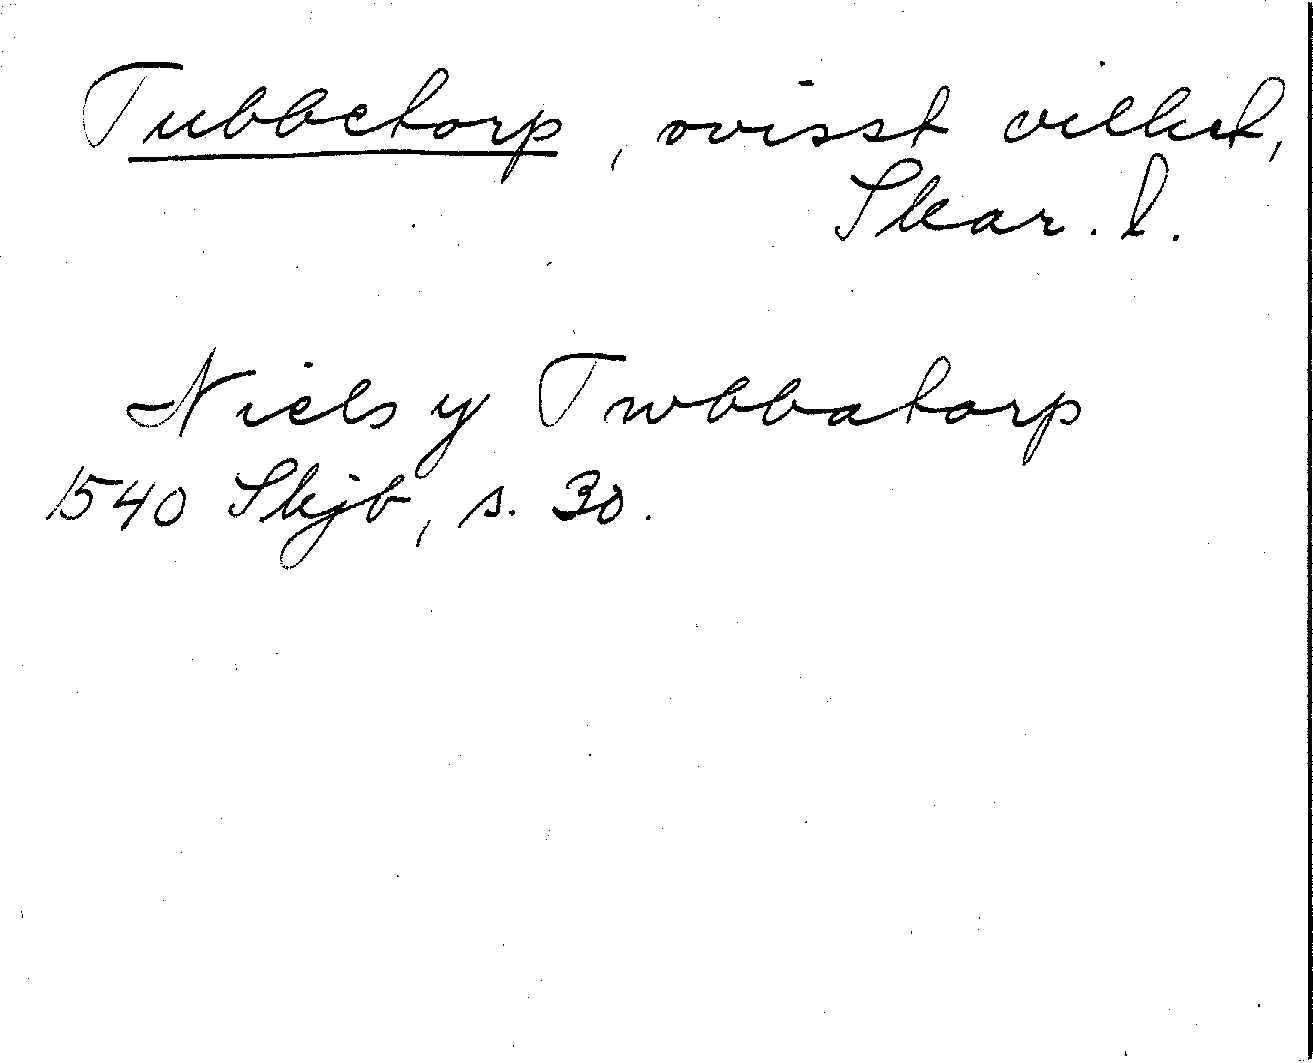 Tubbetorp, ovisst vilket,
Skar. l.
Niels y Twbbatorp
1540 Skjb, s. 30.